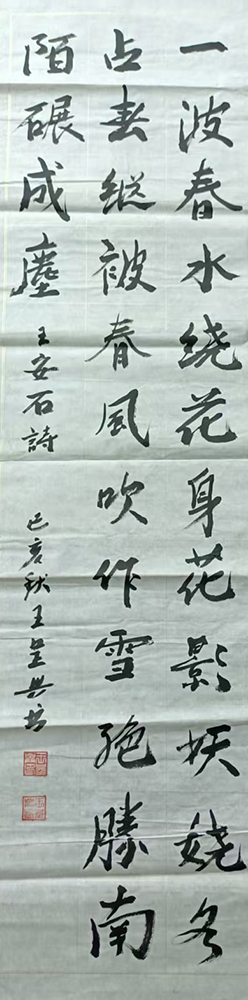 一波春水绕花身花影妖娆各
占春縱被春風吹作雪絶勝南
陌碾成塵 王安石詩 己亥秋王呈兴书